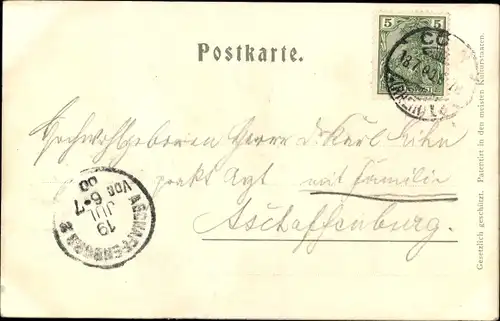 Postkarte.
5 5
CÖ
Hochwohlgeboren Herrn Dr. Karl
prakt Arzt mit Familie
Aschaffenburg.
ASCHAFFENBURG 2
19
JUL
6-7
VOR
00
Gesetzlich geschützt. Patentirt in den meisten Kulturstaaten.